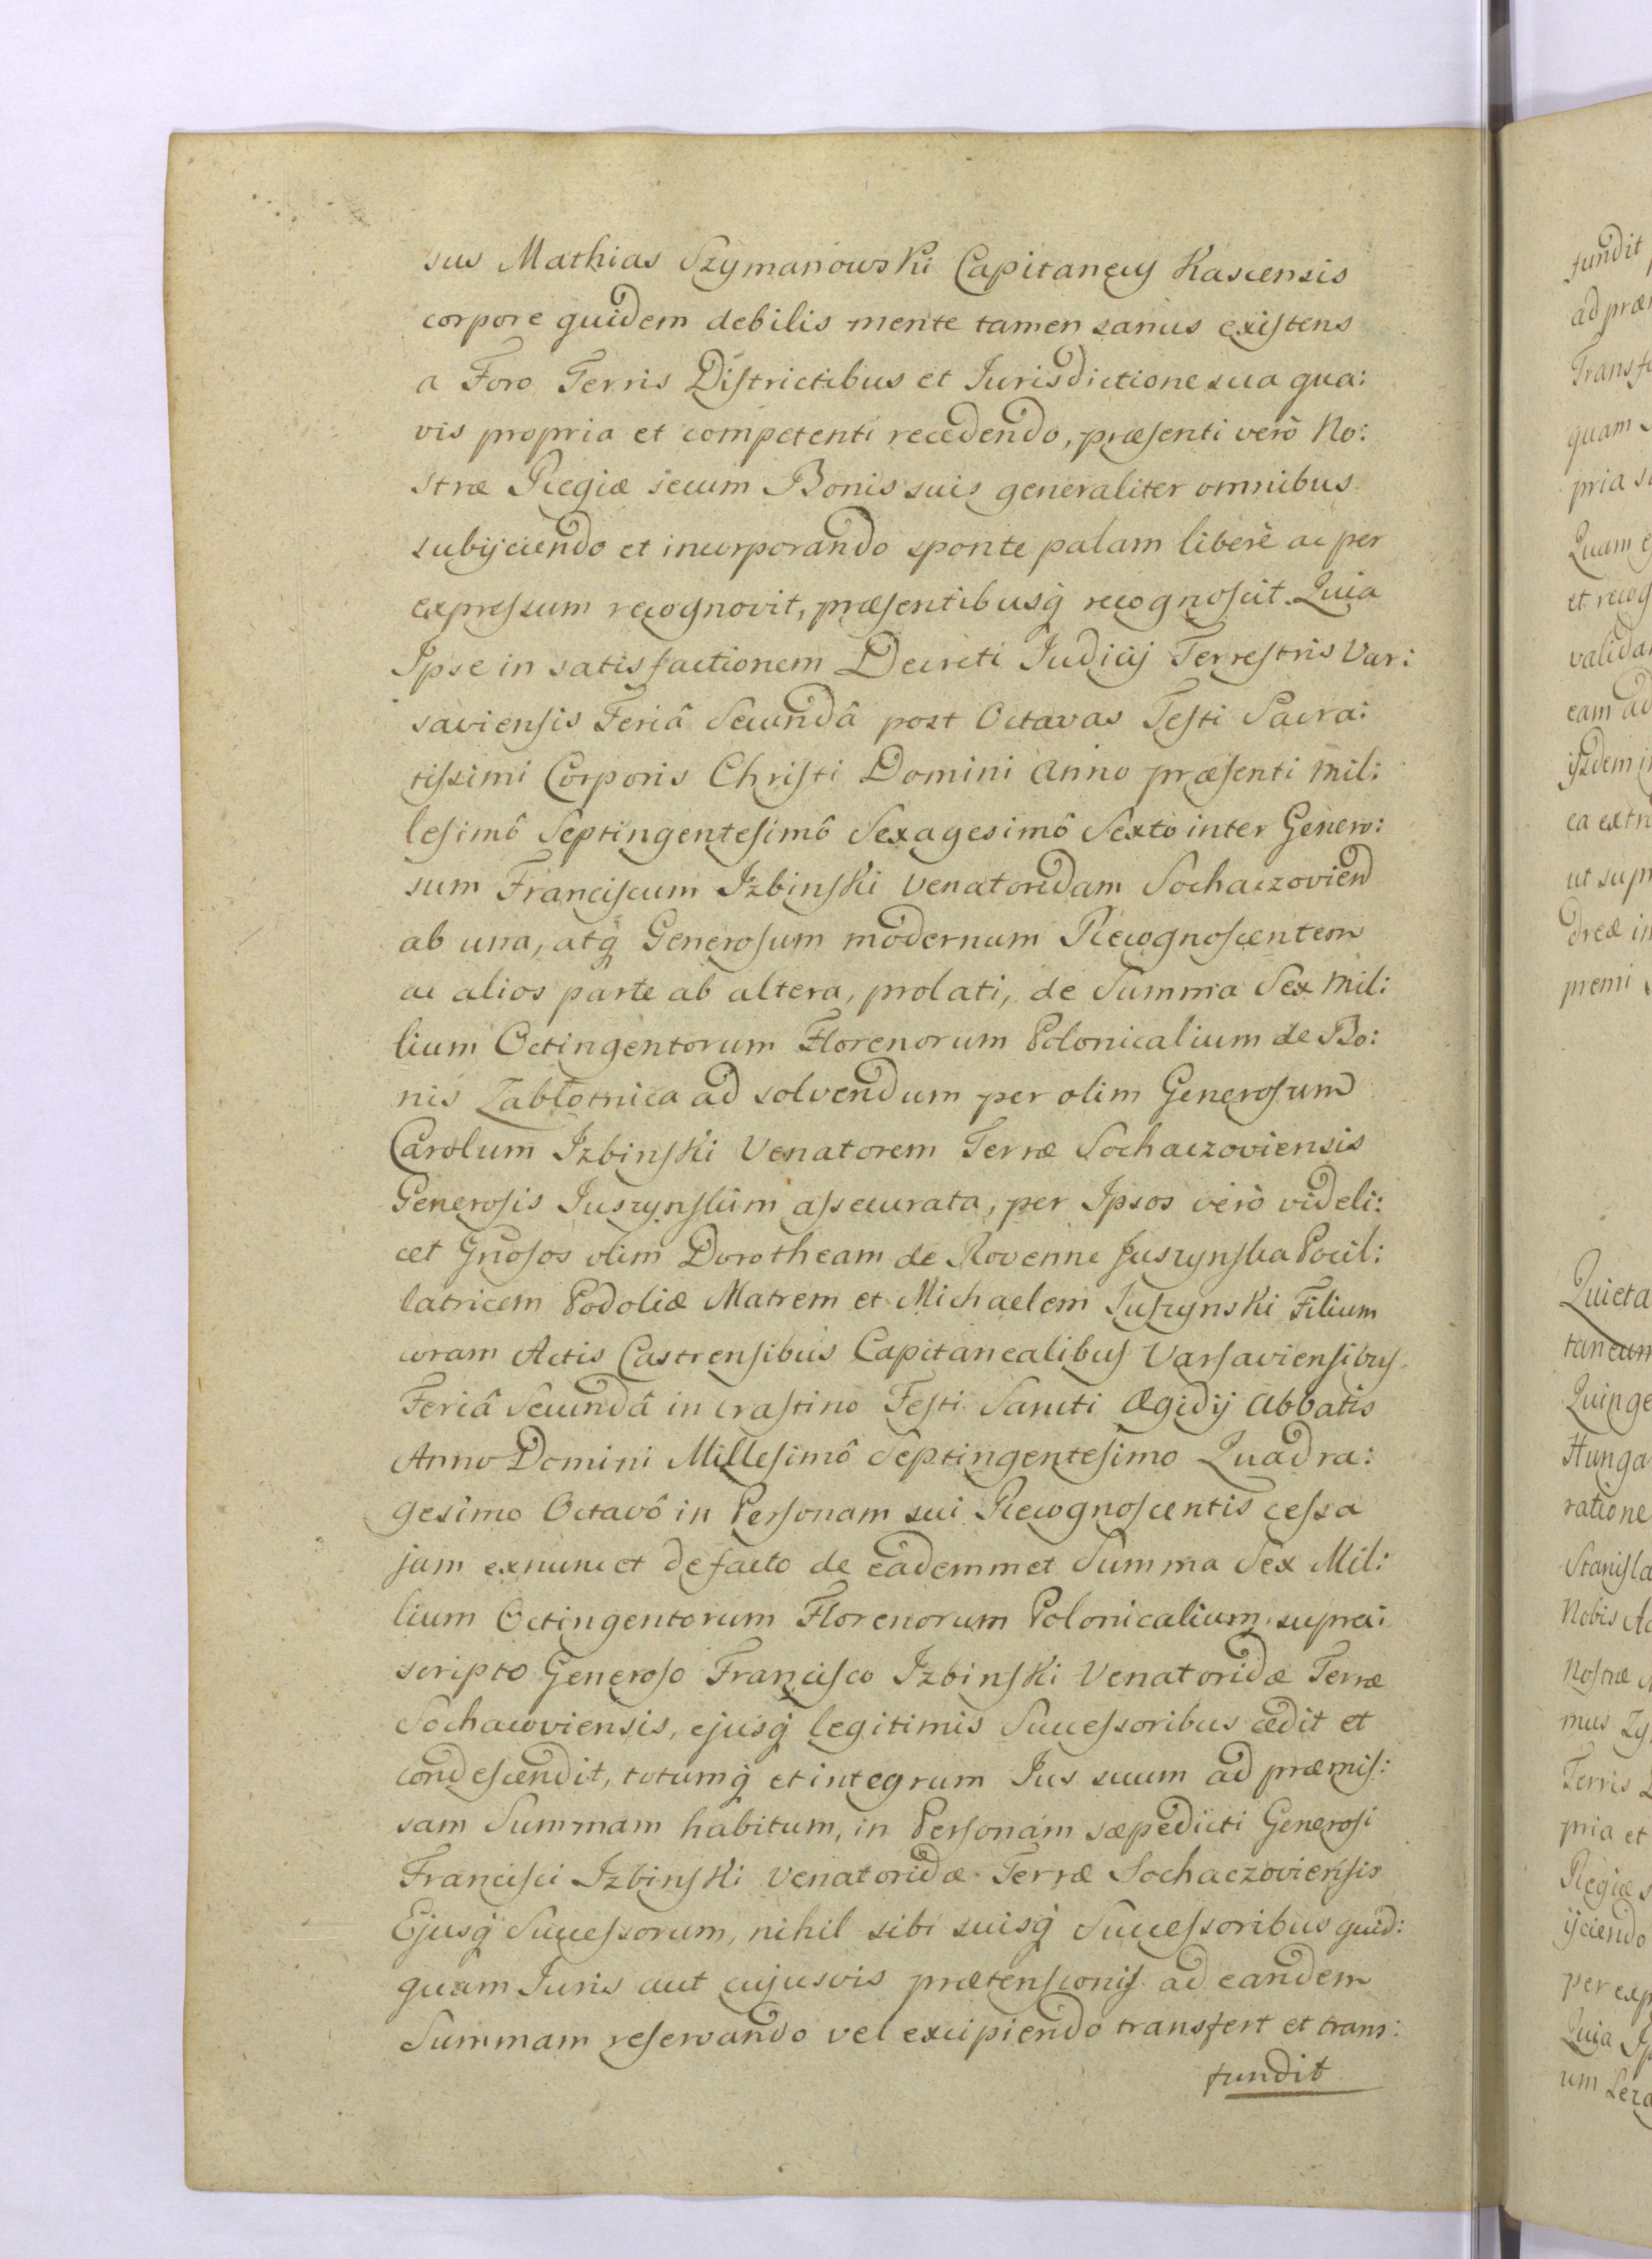 sus Mathias Szymanowski Capitaneus Kascensis
corpore quidem debilis mente tamen sanus existens
a Foro Terris Districtibus et Jurisdictione sua qua:
vis propria et competenti recedendo, præsenti verò No:
stræ Regiæ secum Bonis suis generaliter omnibus
subijciendo et incorporando sponte palam liberè ac per
expressum recognovit, præsentibusq recognoscit. Quia
Ipse in satisfactionem Decreti Judicij Terrestris Var:
saviensis Feriâ Secundâ post Octavas Festi Sacra:
tissimi Corporis Christi Domini Anno præsenti Mil:
lesimô Septingentesimô Sexagesimô Sexto inter Genero:
sum Franciscum Izbinski Venatoridam Sochaczovien
ab una, atq Generosum modernum Recognoscentem
ac alios parte ab altera, prolati, de Summa Sex Mil:
lium Octingentorum Florenorum Polonicalium de Bo:
nis Zabłotnica ad solvendum per olim Generosum
Carolum Izbinski Venatorem Terræ Sochaczoviensis
Generosis Juszynskim assecurata, per Ipsos verò videli:
cet Gnosos olim Dorotheam de Rovenne Juszynska Pocil:
latricem Podoliæ Matrem et Michaelem Juszynski Filium
coram Actis Castrensibus Capitanealibus Varsaviensibus
Feriâ Secundâ in crastino Festi Sancti Ægidij Abbatis
Anno Domini Millesimô Septingentesimo Quadra:
gesimo Octavô in Personam sui Recognoscentis cessa
jam exnunc et defacto de eademmet Summa Sex Mil:
lium Octingentorum Florenorum Polonicalium supra:
scripto Generoso Francisco Izbinski Venatoridæ Terræ
Sochacoviensis, ejusq legitimis Successoribus cedit et
condescendit, totumq et integrum Jus suum ad præmis:
sam Summam habitum, in Personam sæpedicti Generosi
Francisci Izbinski Venatoridæ Terræ Sochaczoviensis
Ejusq Successorum, nihil sibi suisq Successoribus quid:
quam Juris aut cujusvis prætensionis ad eandem
Summam reservando vel excipiendo transfert et trans:
fundit
fundit
ad præ
Transf
quam
pria s
Quam
et recog
valida
eam ad
ijsdem
ea extr
ut sup
dreæ in
premi
Quieta
tancum
Quinge
Hunga
ratione
Stanisla
Nobis Ac
Nostræ
mus Zy
Terris
pria et
Regiæ s
ijciendo
per exp
Quia Ip
um Leza